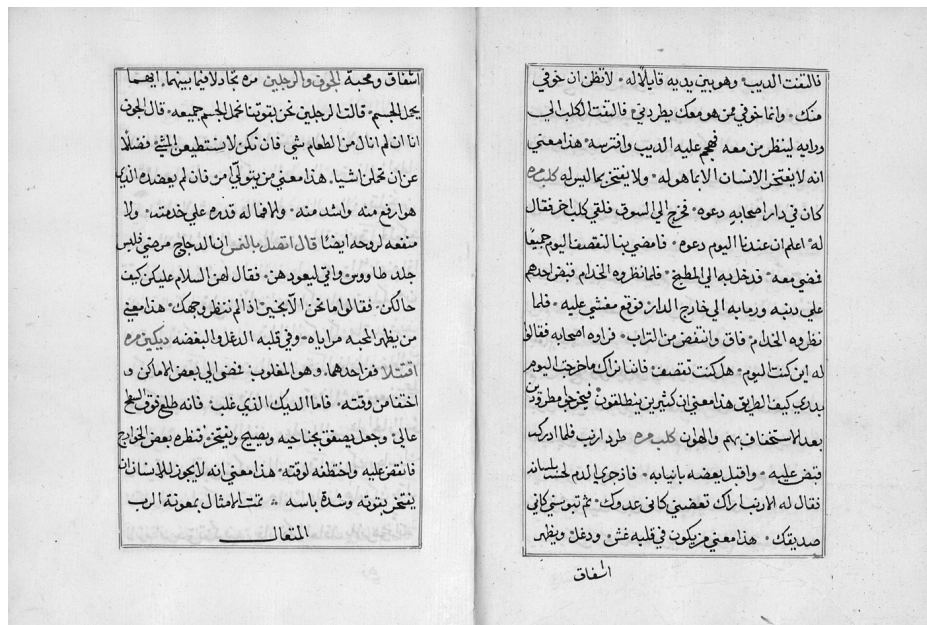 فالتفت الديب وهو بين يديه قايلًا له لا تظن ان خوفي
منك وانما خوفي ممن هو معك يطردني فالتفت الكلب الى
ورايه لينظر من معه فهجم عليه الديب وافترسه هذا معني
انه لا يفتخر الانسان الا بما هو له ولا يفتخر بما ليس له كلب مره
كان في دار اصحابه دعوه فخرج الي السوق فلقي كلب اخر فقال
له اعلم ان عندنا اليوم دعوه فامضي بنا لنقصف اليوم جميعًا
فمضي معه فدخل به الي المطبخ فلما نظروه الخدام قبض احدهم
علي دنبه ورما به الي خارج الدار فوقع مغشي عليه فلما
نظروه الخدام فاق وانتفض من التراب فراوه اصحابه فقالوا
له اين كنت اليوم هل كنت تقصف فاننا نراك ما خرجت اليوم
بدري كيف الطريق هذا معني ان كثيرين يتطلفون فيخرجوا مطرودين
بعد الاستخفاف بهم والهوان كلب مره طرد ارنب فلما ادركه
قبض عليه واقبل يعضه بانيابه فاذ جري الدم لحسه بلسانه
فقال له الارنب اراك تعضني كاني عدوك ثم تبوسني كاني
صديقك هذا معني من يكون في قلبه غش ودغل ويظهر
اشفاق
اشفاق ومحبة الجوف والرجلين مره تجادلا فيما بينهما ايهما
يحمل الجسم قالت الرجلين نحن بقوتنا نحمل الجسم جميعه قال الجوف
انا ان لم انال من الطعام شي فان تكن لا تستطيعن المشي فضلًا
عن ان تحملن اشيا هذا معني من يتولي من فان لم يعضده الذي
هو ارفع منه واشد منه والا فما له قدره علي خدمته ولا
منفعه لروحه ايضًا قال اتصل بالنمس ان الدجاج مرضي فلبس
جلد طاووس واتي ليعودهن فقال لهن السلام عليكن كيف
حالكن فقالوا ما نحن الا بخير اذ لم ننظر وجهك هذا معني
من يظهر المحبه مراياه وفي قلبه الدغل والبغضه ديكين مره
اقتتلا ففر احدهما وهو المغلوب فمضي الي بعض الاماكن و
اختفا من وقته فاما الديك الذي غلب فانه طلع فوق السطح
عالي وجعل يصفق بجناحيه ويصيح ويفتخر فنظره بعض الجوارح
فانقض عليه واختطفه لوقته هذا معني انه لا يجوز للانسان ان
يفتخر بقوته وشدة باسه تمت الامثال بمعونة الرب
المتعال